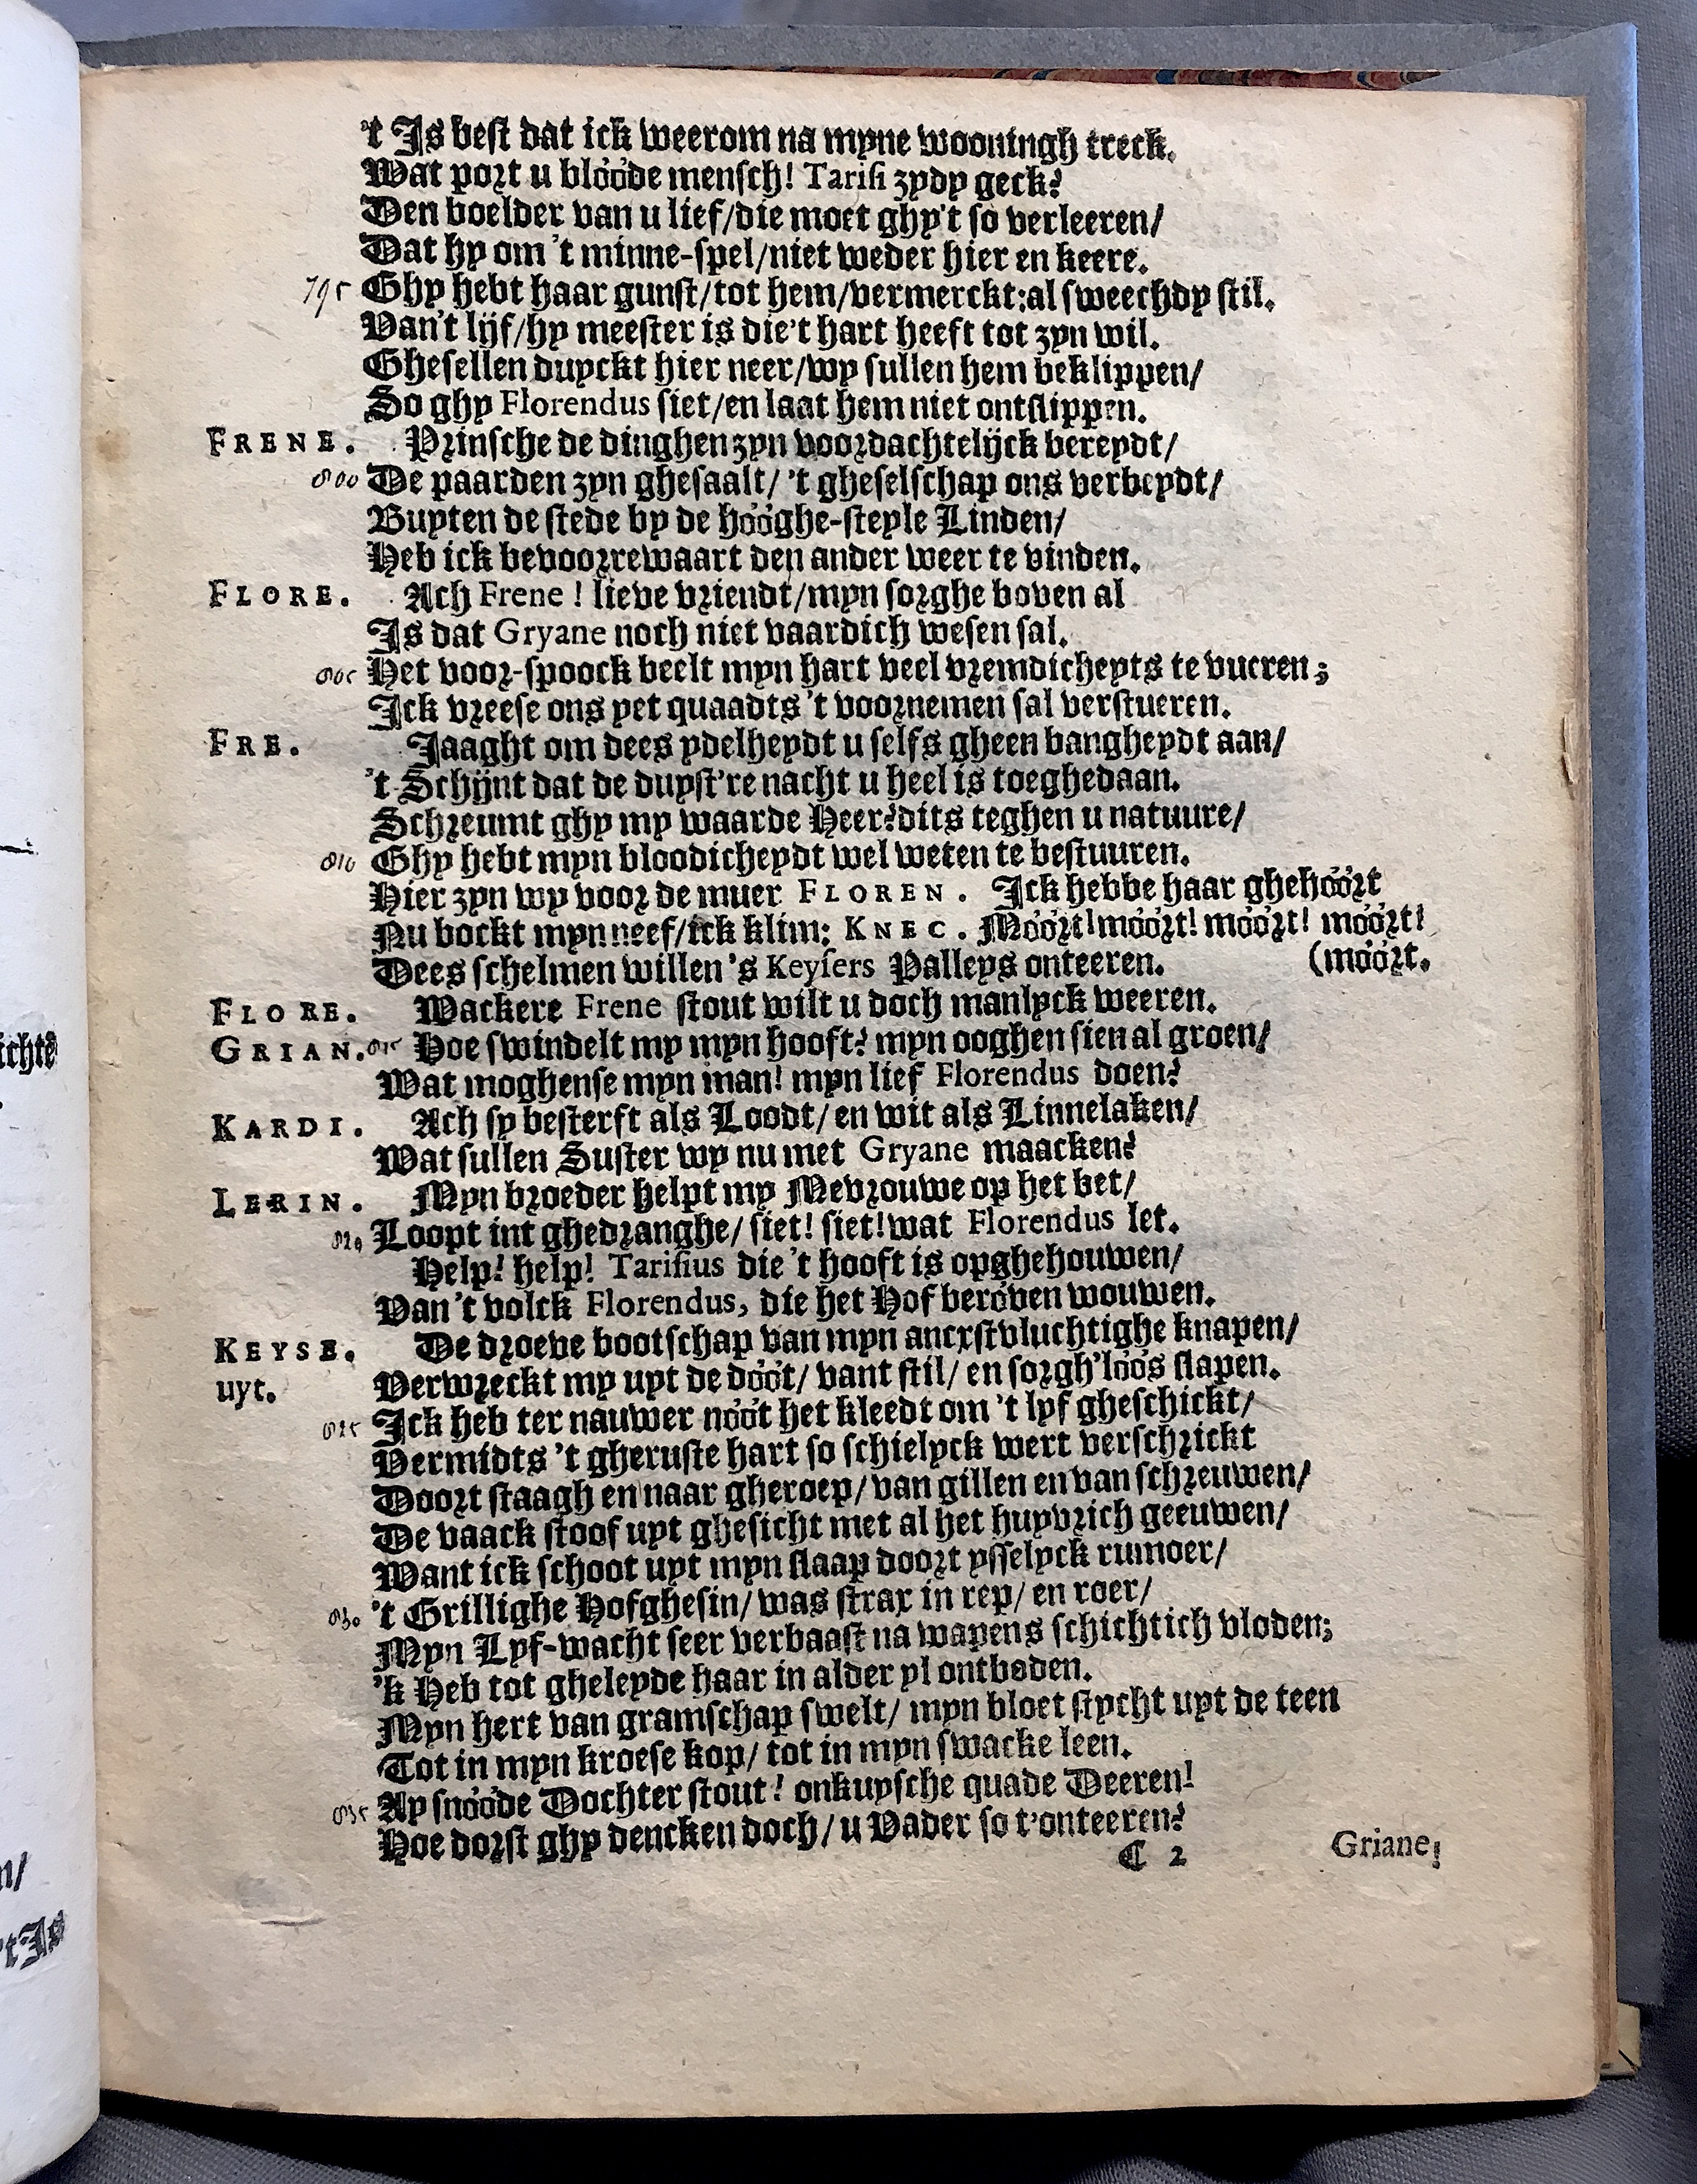 't Is best dat ick weerom na myne wooningh treck.
Wat port u blóóde mensch! Tarisi zydy geck?
Den boelder van u lief/die moet ghy't so verleeren/
Dat hy om 't minne-spel/niet weder hier en keere.
795 Ghy hebt haar gunst/tot hem/vermerckt:al sweechdy stil.
Van't lijf/hy meester is die't hart heeft tot zyn wil.
Ghesellen duyckt hier neer/wy sullen hem beklippen/
So ghy Florendus siet/en laat hem niet ontslippen.
FRENE. Prinsche de dinghen zyn voordachtelijck bereydt/
800 De paarden zyn ghesaalt/ 't gheselschap ons verbeydt/
Buyten de stede by de hóóghe-steyle Linden/
Heb ick bevoorrewaart den ander weer te vinden.
FLORE. Ach Frene! lieve vriendt/myn sorghe boven al
Is dat Gryane noch niet vaardich wesen sal.
805 Het voor-spoock beelt myn hart veel vremdicheyts te vueren;
Ick vreese ons yet quaadts 't voornemen sal verstueren.
FRE. Jaaght om dees ydelheydt u selfs gheen bangheydt aan/
't Schijnt dat de duyst're nacht u heel is toeghedaan.
Schreumt ghy my waarde Heer?dits teghen u natuure/
810 Ghy hebt myn bloodicheydt wel weten te bestuuren.
Hier zyn wy voor de muer FLOREN. Ick hebbe haar ghehóórt
Nu bockt myn neef/ick klim: KNEC. Móórt!móórt! móórt! móórt!
Dees schelmen willen 's Keysers Palleys onteeren. (móórt.
FLORE. Wackere Frene stout wilt u doch manlyck weeren.
GRIAN. 815 Hoe swindelt my myn hooft? myn ooghen sien al groen/
Wat moghense myn man! myn lief Florendus doen?
KARDI. Ach sy besterft als Loodt/ en wit als Linnelaken/
Wat sullen Suster wy nu met Gryane maacken?
LERIN. Myn broeder helpt my Mevrouwe op het bet/
820 Loopt int ghedranghe/ siet! siet!wat Florendus let.
Help! help! Tarisius die 't hooft is opghehouwen/
Van't volck Florendus, die het Hof beróven wouwen.
KEYSE. De droeve bootschap van myn ancxstvluchtighe knapen/
uyt. Verwreckt my uyt de dóót/ vant stil/ en sorgh'lóós slapen.
825 Ick heb ter nauwer nóót het kleedt om 't lyf gheschickt/
Vermidts 't gheruste hart so schielyck wert verschrickt
Doort staagh en naar gheroep/ van gillen en van schreuwen/
De vaack stoof uyt ghesicht met al het huyvrich geeuwen/
Want ick schoot uyt myn slaap doort ysselyck rumoer/
830 't Grillighe Hofghesin/ was strax in rep/ en roer/
Myn Lyf-wacht seer verbaast na wapens schichtich vloden;
'k Heb tot gheleyde haar in alder yl ontboden.
Myn hert van gramschap swelt/ myn bloet stycht uyt de teen
Tot in myn kroese kop/ tot in myn swacke leen.
835 Ay snóóde Dochter stout! onkuysche quade Deeren!
Hoe dorst ghy dencken doch/ u Vader so t'onteeren?
C 2 Griane!